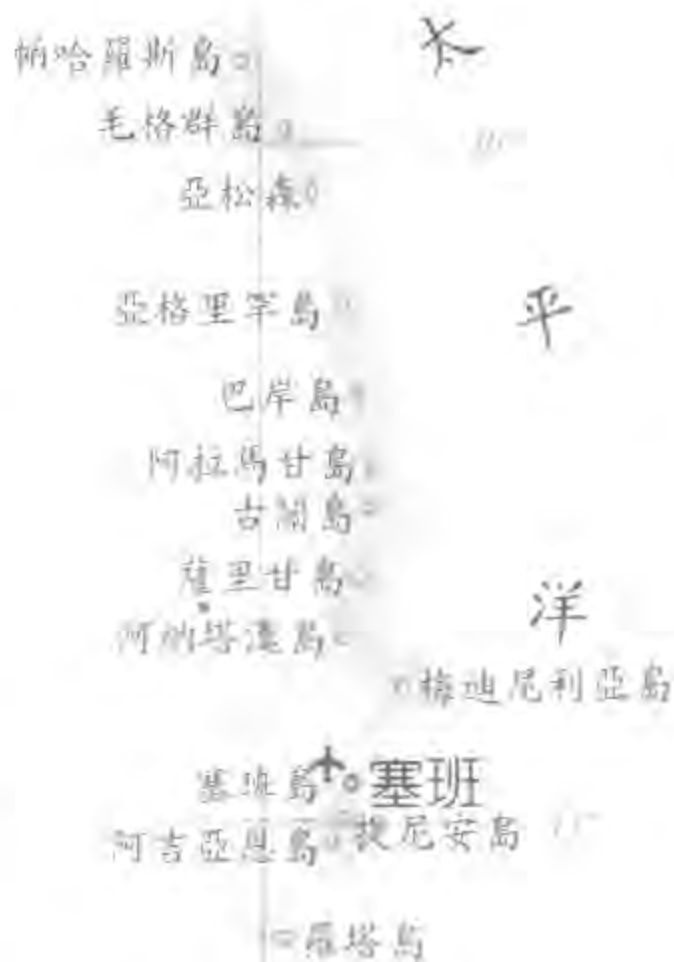 帕哈羅斯島
太
毛格群島
亞松森
亞格里罕島
平
巴岸島
阿拉馬甘島
古關島
薩里甘島
洋
阿納塔漢島
梅迪尼利亞島
塞班島
塞班
阿吉亞恩島
提尼安島
羅塔島